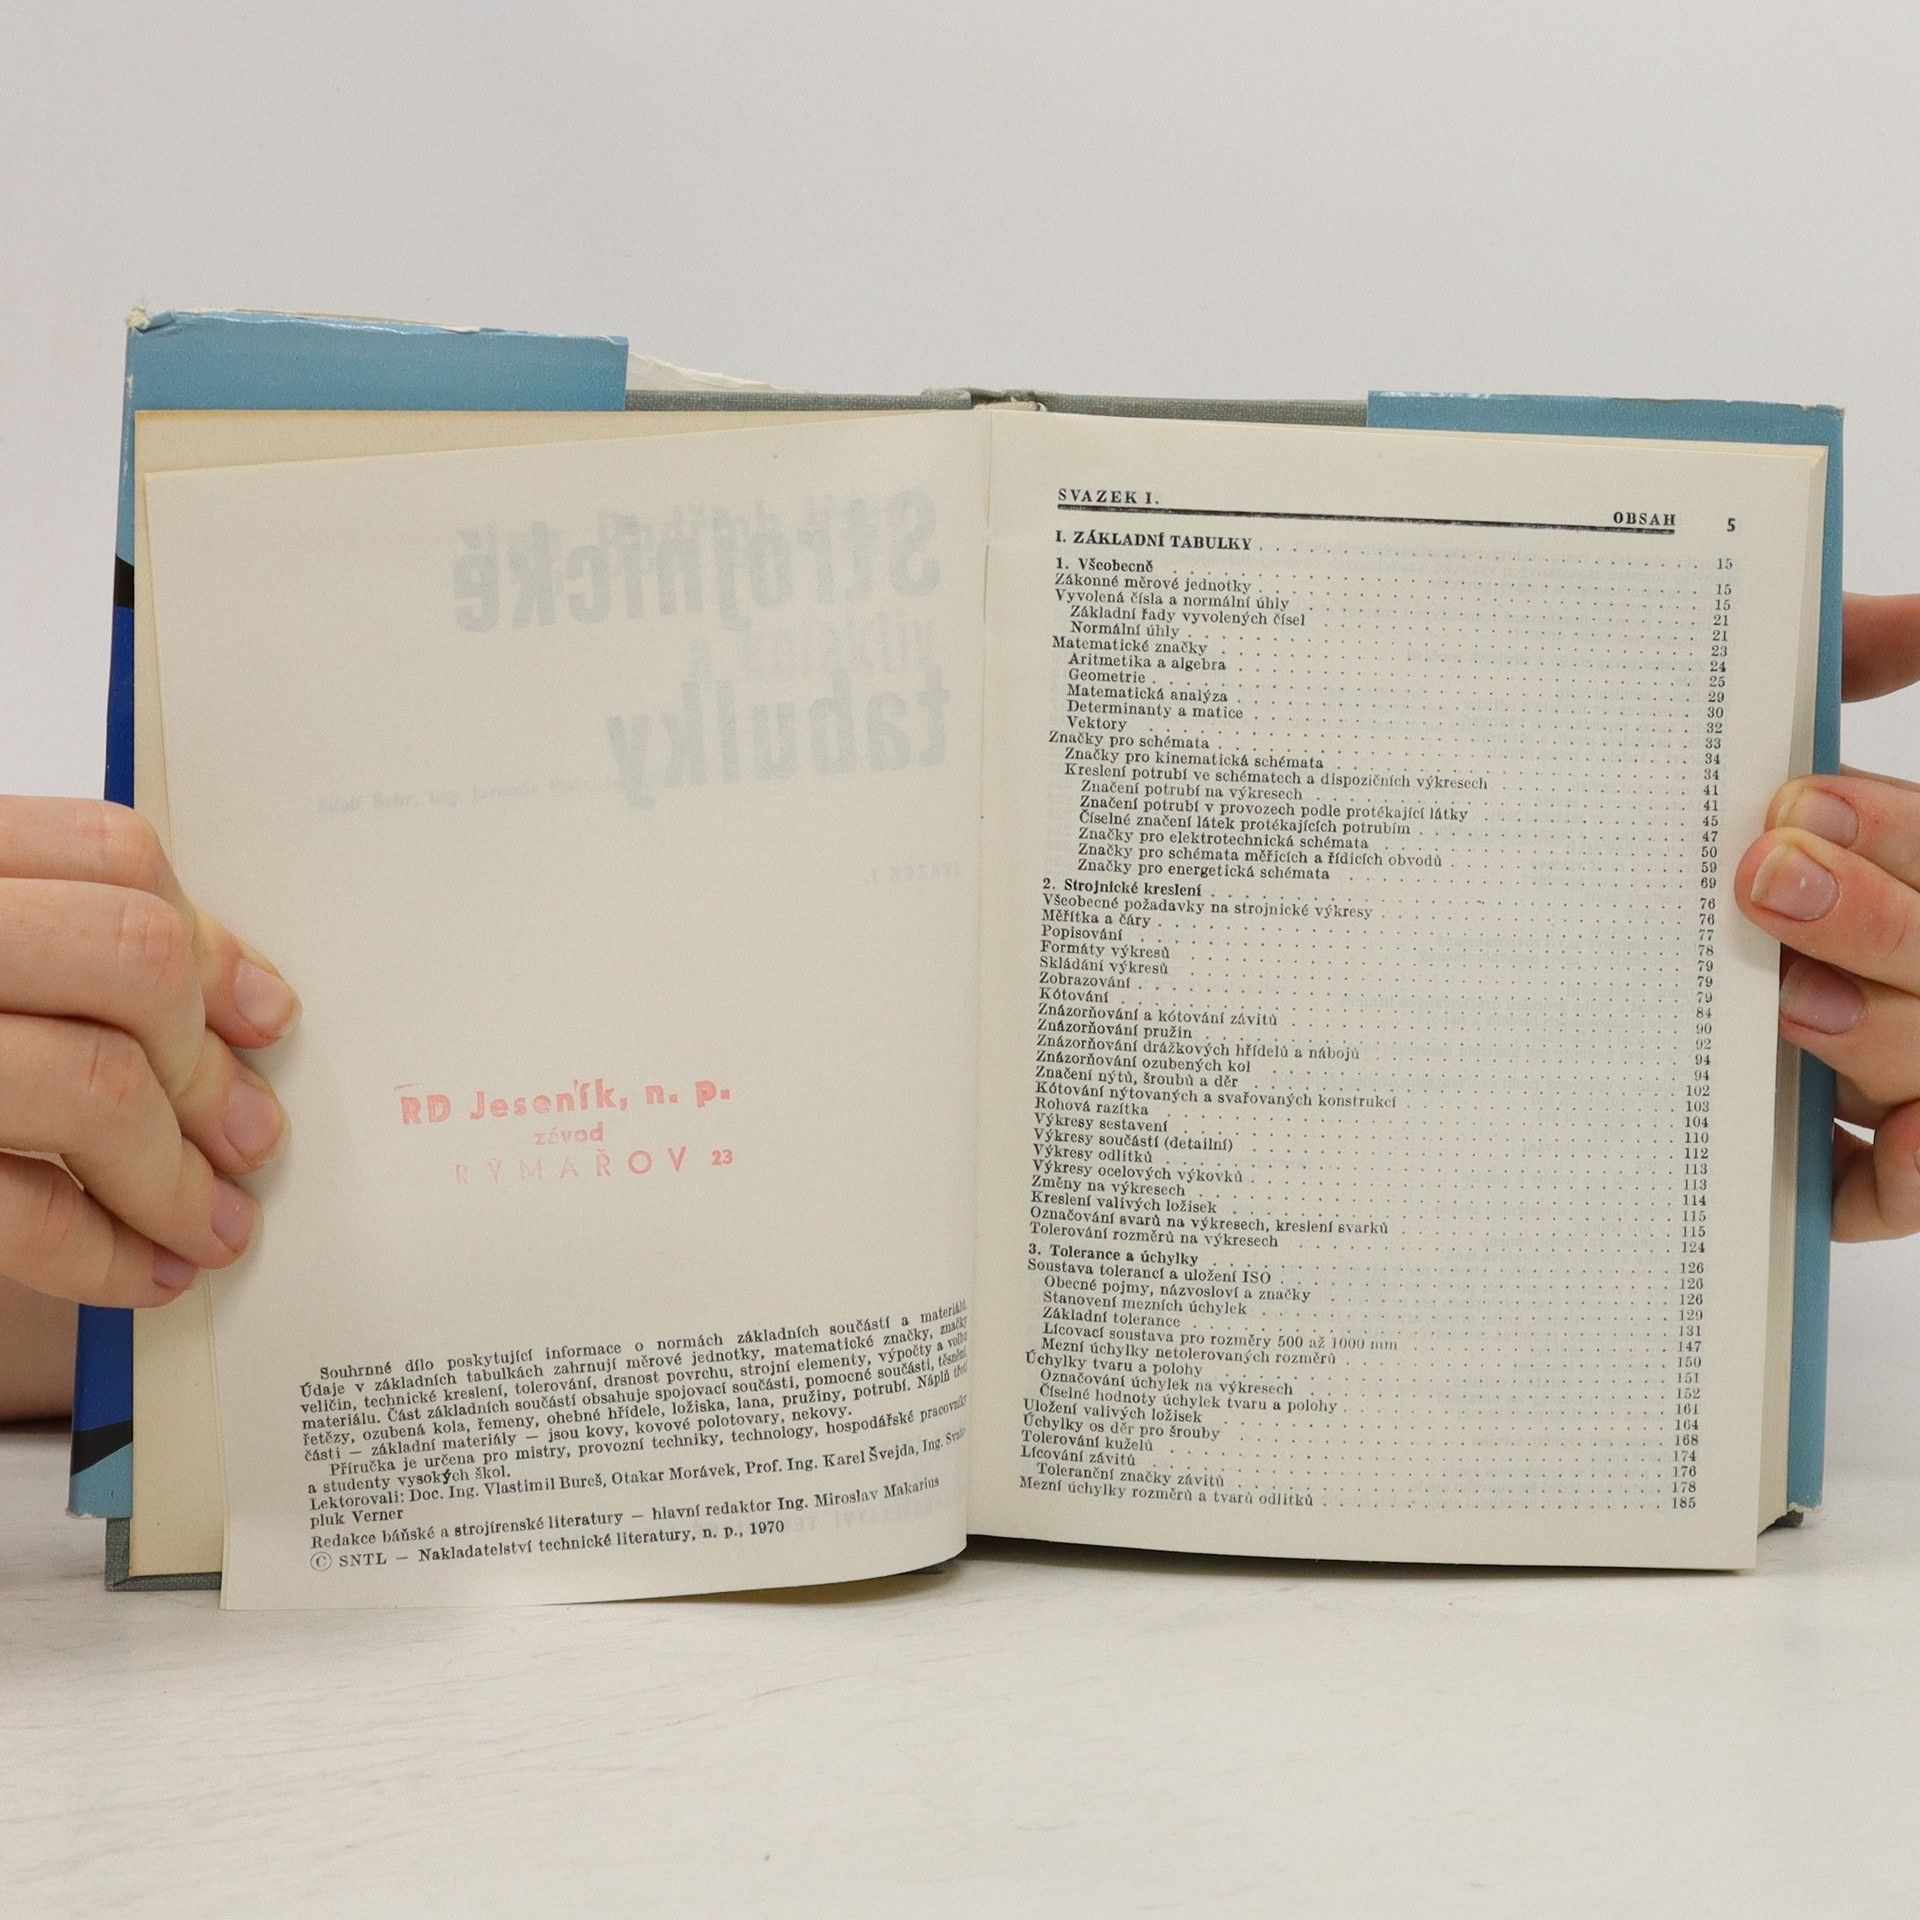 Strojnické
tabulky
RD Jeseník, n. p.
závod
RÝMAŘOV 23
Souhrnné dílo poskytující informace o normách základních součástí a materiálů.
Údaje v základních tabulkách zahrnují měrové jednotky, matematické značky, značky
veličin, technické kreslení, tolerování, drsnost povrchu, strojní elementy, výpočty a volbu
materiálu. Část základních součástí obsahuje spojovací součásti, pomocné součásti, těsnění,
řetězy, ozubená kola, řemeny, ohebné hřídele, ložiska, lana, pružiny, potrubí. Náplň třetí
části — základní materiály — jsou kovy, kovové polotovary, nekovy.
Příručka je určena pro mistry, provozní techniky, technology, hospodářské pracovníky
a studenty vysokých škol.
Lektorovali: Doc. Ing. Vlastimil Bureš, Otakar Morávek, Prof. Ing. Karel Švejda, Ing. Svato-
pluk Verner
Redakce báňské a strojírenské literatury — hlavní redaktor Ing. Miroslav Makarius
© SNTL — Nakladatelství technické literatury, n. p., 1970
SVAZEK I.
OBSAH 5
I. ZÁKLADNÍ TABULKY . . . 15
1. Všeobecně . . . 15
Zákonné měrové jednotky . . . 15
Vyvolená čísla a normální úhly . . . 21
Základní řady vyvolených čísel . . . 21
Normální úhly . . . 23
Matematické značky . . . 24
Aritmetika a algebra . . . 25
Geometrie . . . 29
Matematická analýza . . . 30
Determinanty a matice . . . 32
Vektory . . . 33
Značky pro schémata . . . 34
Značky pro kinematická schémata . . . 34
Kreslení potrubí ve schématech a dispozičních výkresech . . . 41
Značení potrubí na výkresech . . . 41
Značení potrubí v provozech podle protékající látky . . . 45
Číselné značení látek protékajících potrubím . . . 47
Značky pro elektrotechnická schémata . . . 50
Značky pro schémata měřicích a řídicích obvodů . . . 59
Značky pro energetická schémata . . . 69
2. Strojnické kreslení . . . 76
Všeobecné požadavky na strojnické výkresy . . . 76
Měřítka a čáry . . . 77
Popisování . . . 78
Formáty výkresů . . . 79
Skládání výkresů . . . 79
Zobrazování . . . 79
Kótování . . . 84
Znázorňování a kótování závitů . . . 90
Znázorňování pružin . . . 92
Znázorňování drážkových hřídelů a nábojů . . . 94
Znázorňování ozubených kol . . . 94
Značení nýtů, šroubů a děr . . . 102
Kótování nýtovaných a svařovaných konstrukcí . . . 103
Rohová razítka . . . 104
Výkresy sestavení . . . 110
Výkresy součástí (detailní) . . . 112
Výkresy odlitků . . . 113
Výkresy ocelových výkovků . . . 113
Změny na výkresech . . . 114
Kreslení valivých ložisek . . . 115
Označování svarů na výkresech, kreslení svarků . . . 115
Tolerování rozměrů na výkresech . . . 124
3. Tolerance a úchylky . . . 126
Soustava tolerancí a uložení ISO . . . 126
Obecné pojmy, názvosloví a značky . . . 126
Stanovení mezních úchylek . . . 129
Základní tolerance . . . 131
Lícovací soustava pro rozměry 500 až 1000 mm . . . 147
Mezní úchylky netolerovaných rozměrů . . . 150
Úchylky tvaru a polohy . . . 151
Označování úchylek na výkresech . . . 152
Číselné hodnoty úchylek tvaru a polohy . . . 161
Uložení valivých ložisek . . . 164
Úchylky os děr pro šrouby . . . 168
Tolerování kuželů . . . 174
Lícování závitů . . . 176
Toleranční značky závitů . . . 178
Mezní úchylky rozměrů a tvarů odlitků . . . 185